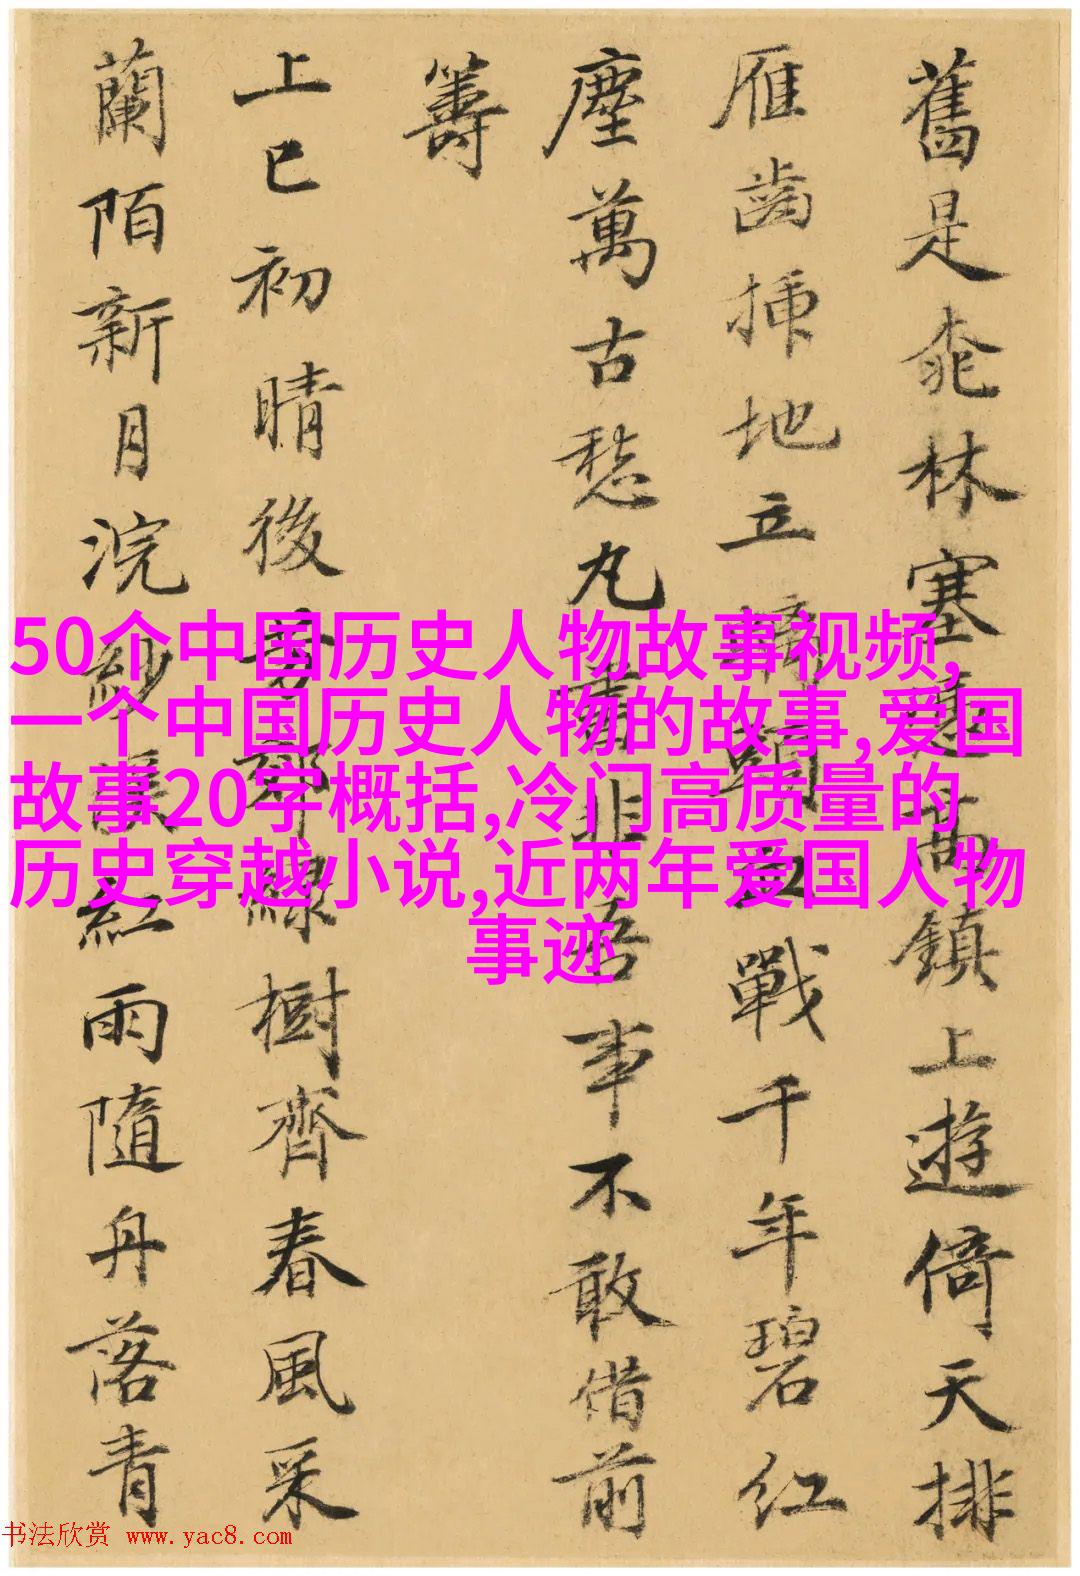 舊是桃林塞當鎮上遊倚天排
雁齒插地立螭頭血戰千年碧紅
塵萬古愁丸非吾事不敢借前
籌
上巳初晴後芳郊綠樹齊春風采
蘭陌新月浣紗溪紅雨隨舟落青
50个中国历史人物故事视频,
一个中国历史人物的故事,爱国
故事20字概括,冷门高质量的
历史穿越小说,近两年爱国人物
事迹
书法欣赏 www.yac8.com